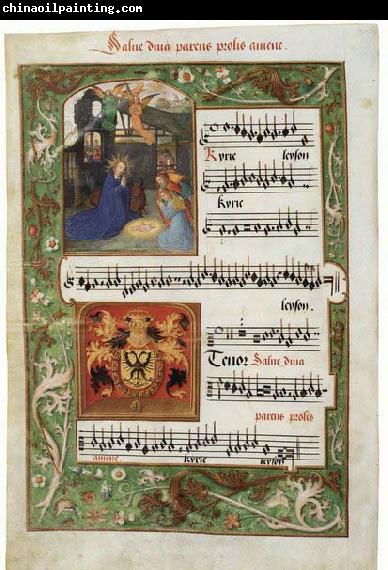 chinaoilpainting.com
Salue diua parens prolis amene.
Kyrie leyson
Kyrie
leyson.
Tenor Salue diua
parens prolis
amene. Kyrie leyson